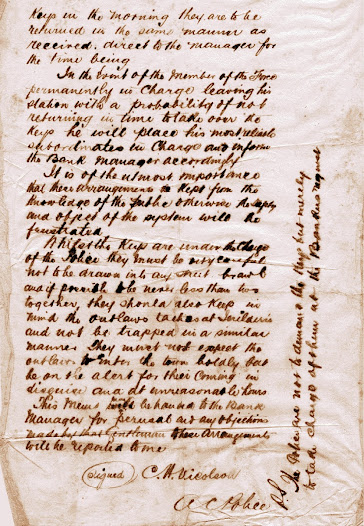 Keys in the morning they are to be
returned in the same manner as
received. direct to the manager for
the time being
In the event of the Member of the Force
permanently in Charge leaving his
station with a probability of not
returning in time to take over the
Keys he will place his most reliable
subordinates in Charge and inform
the Bank Manager accordingly
It is of the utmost importance
that these Arrangements is Kept from the
Knowledge of the Public otherwise the
and office of the system will be
frustrated
Whilst the Keys are under the Charge
of the Police they must be very careful
not be drawn into any street brawl
and if possible to be never less than two
together, they should also keep in
mind the outlaws at Jerilderie
and not be trapped in a similar
manner They must not expect the
outlaws to Enter the town boldly but
be on the alert for their Coming in
disguise and at unreasonable hours
This Memo will be handed to the Bank
Manager for perusal and any objections
made by that Gentleman these Arrangements
will be reported to me
(signed) C. H. Nicolson
A C Police
P.S The Police are not to demand the Keys but merely
to take charge of them at the Bankers request